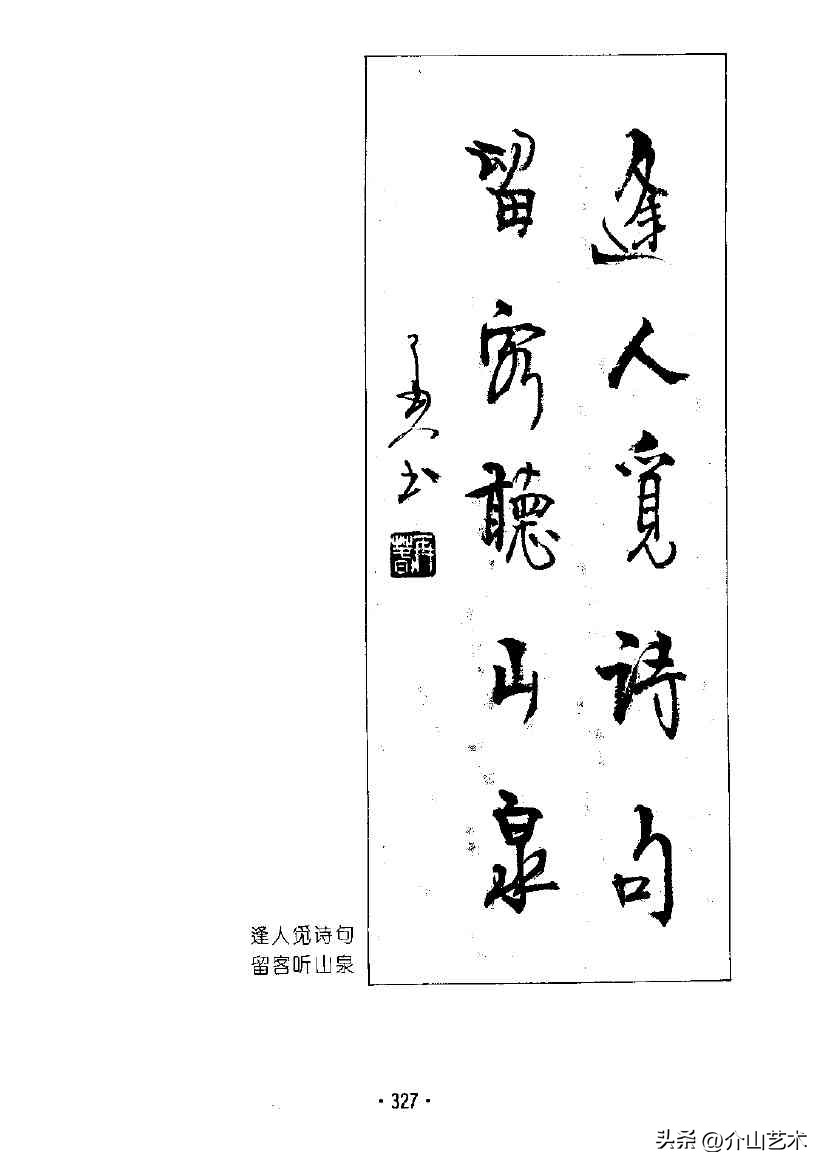 逢人觅詩句
留客聽山泉
逢人觅诗句
留客听山泉
· 327 ·
头条 @介山艺术